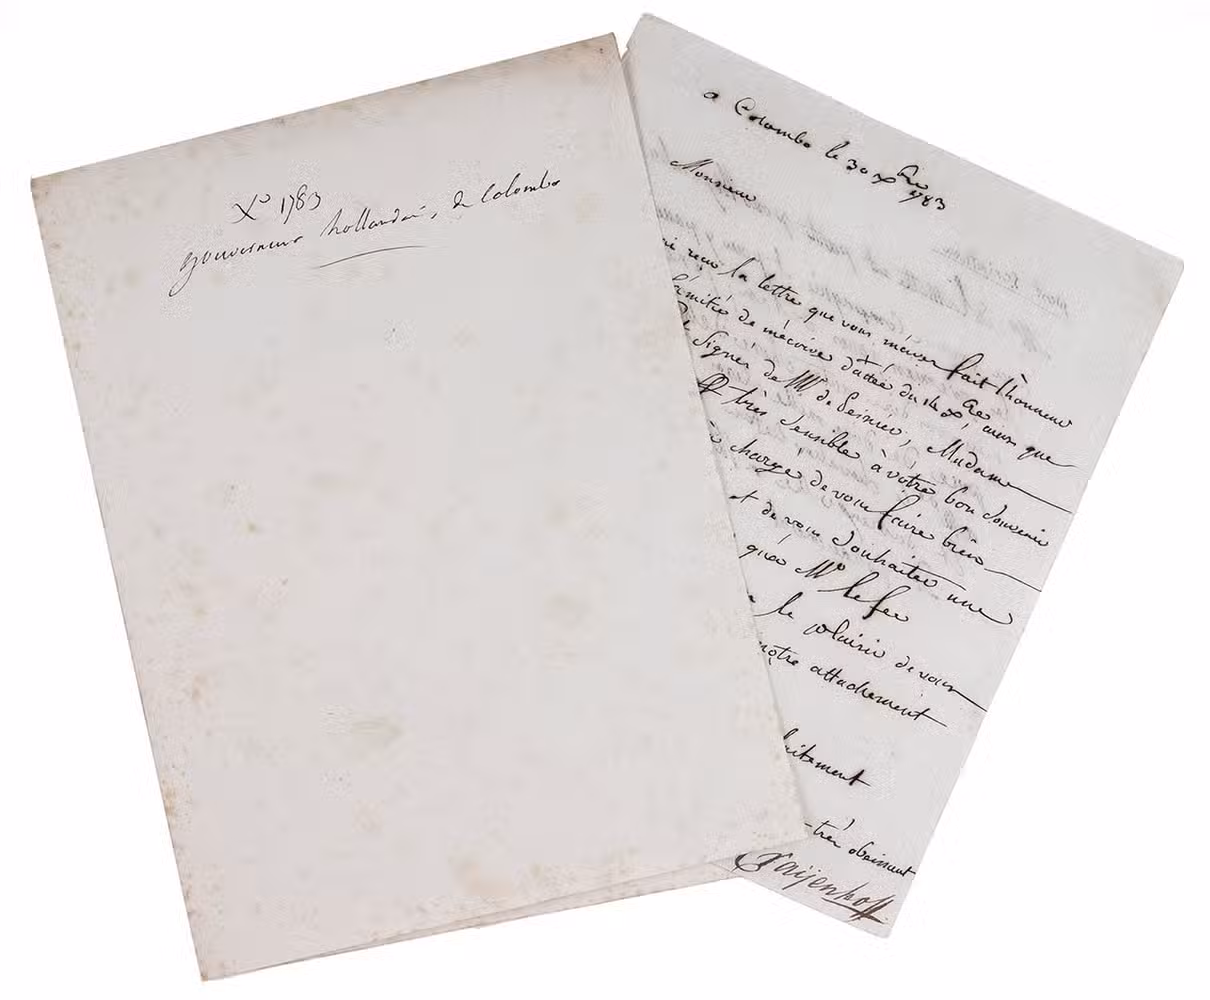 Xo 1783
gouverneur hollandais, de Colombo
a Colombo le 30 Xbre 1783
Monsieur
recu la lettre que vous m'avez fait l'honneur
l'amitié de m'écrire dattée du 14 Xbre, ainsi que
signés de Mr de Peinier, Madame
très sensible à vôtre bon souvenir
chargé de vous faire bien
et de vous souhaiter une
qu'a Mr
le plaisir de vous
nôtre attachement
faitement
très obeissant